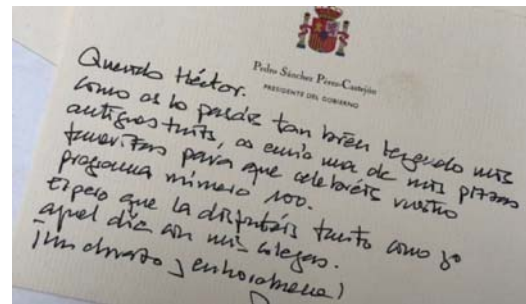 Pedro Sánchez Pérez-Castejón
PRESIDENTE DEL GOBIERNO
Querido Héctor.
Como os lo pasáis tan bien leyendo mis
antiguos tuits, os envío una de mis pizzas
favoritas para que celebréis vuestro
programa número 100.
Espero que la disfrutéis tanto como yo
aquel día con mis colegas.
¡Un abrazo y enhorabuena!